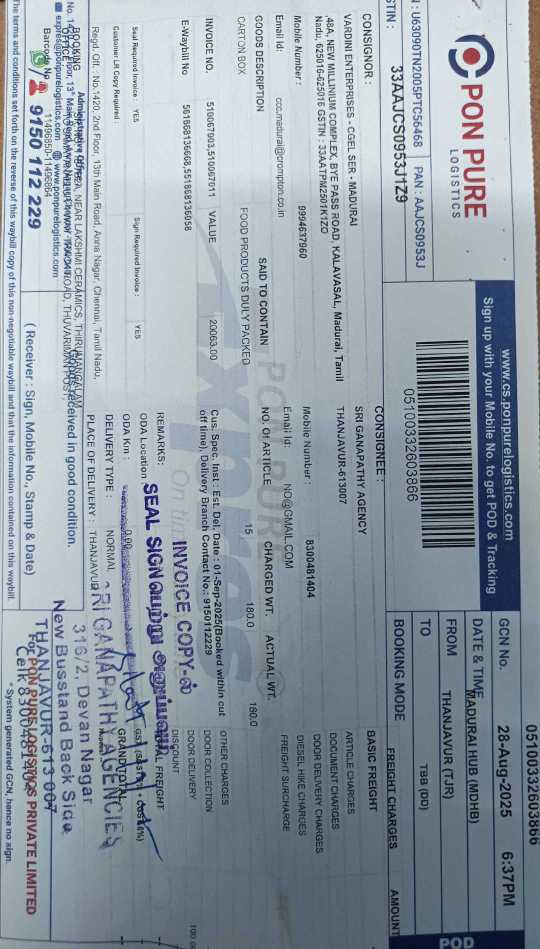 PON PURE
LOGISTICS
www.cs.ponpurelogistics.com
Sign up with your Mobile No. to get POD & Tracking
05100332603866
: U63090TN2005PTC56468 PAN : AAJCS0953J
STIN : 33AAJCS0953J1Z9
05100332603866
GCN No.
DATE & TIME 28-Aug-2025 6:37PM
FROM MADURAI HUB (MDHB)
TO THANJAVUR (TJR)
BOOKING MODE TBB (DD)
CONSIGNOR :
VARDINI ENTERPRISES - CGEL SER - MADURAI
,48A, NEW MILLINIUM COMPLEX, BYE PASS ROAD, KALAVASAL, Madurai, Tamil
Nadu, 625016-625016 GSTIN : 33AATPM2501K1ZO
Mobile Number : 9994637960
Email Id: ccc.madurai@crompton.co.in
CONSIGNEE :
SRI GANAPATHY AGENCY
THANJAVUR-613007
Mobile Number : 8300481404
Email Id: NO@GMAIL.COM
FREIGHT CHARGES AMOUNT
BASIC FREIGHT
ARTICLE CHARGES
DOCUMENT CHARGES
DOOR DELIVERY CHARGES
DIESEL HIKE CHARGES
FREIGHT SURCHARGE
OTHER CHARGES
DOOR COLLECTION
DOOR DELIVERY
DISCOUNT
TOTAL FREIGHT
GRAND TOTAL
GOODS DESCRIPTION SAID TO CONTAIN NO. Of ARTICLE CHARGED WT. ACTUAL WT.
CARTON BOX FOOD PRODUCTS DULY PACKED 15 180.0 180.0
INVOICE NO. 510067003,510067011 VALUE 20063.00
E-Waybill No 561868136668,551868136058
Cus. Spec. Inst : Est. Del. Date : 01-Sep-2025(Booked within cut
off time), Delivery Branch Contact No.: 9150112229
INVOICE COPY-ல்
SEAL SIGN பெற்று அனுப்பவும்
Seal Required Invoice : YES Sign Required Invoice : YES
Customer LR Copy Required :
REMARKS:
ODA Location :
ODA Km : 0.00
DELIVERY TYPE : NORMAL
PLACE OF DELIVERY : THANJAVUR
Regd. Off. : No.1420, 2nd Floor, 13th Main Road, Anna Nagar, Chennai, Tamil Nadu,
BOOKING
OFFICE
Administrative Office
Barcode No
11496850-11496864
expres@ponpurelogistics.com www.ponpurelogistics.com
9150 112 229
Goods received in good condition.
( Receiver : Sign, Mobile No., Stamp & Date)
SRI GANAPATHY AGENCIES
316/2, Devan Nagar
New Busstand Back Side
THANJAVUR-613 007
Cell: 8300481404
For PON PURE LOGISTICS PRIVATE LIMITED
* System generated GCN, hence no sign.
The terms and conditions set forth on the reverse of this waybill copy of this non-negotiable waybill and that the information contained on this waybill.
POD